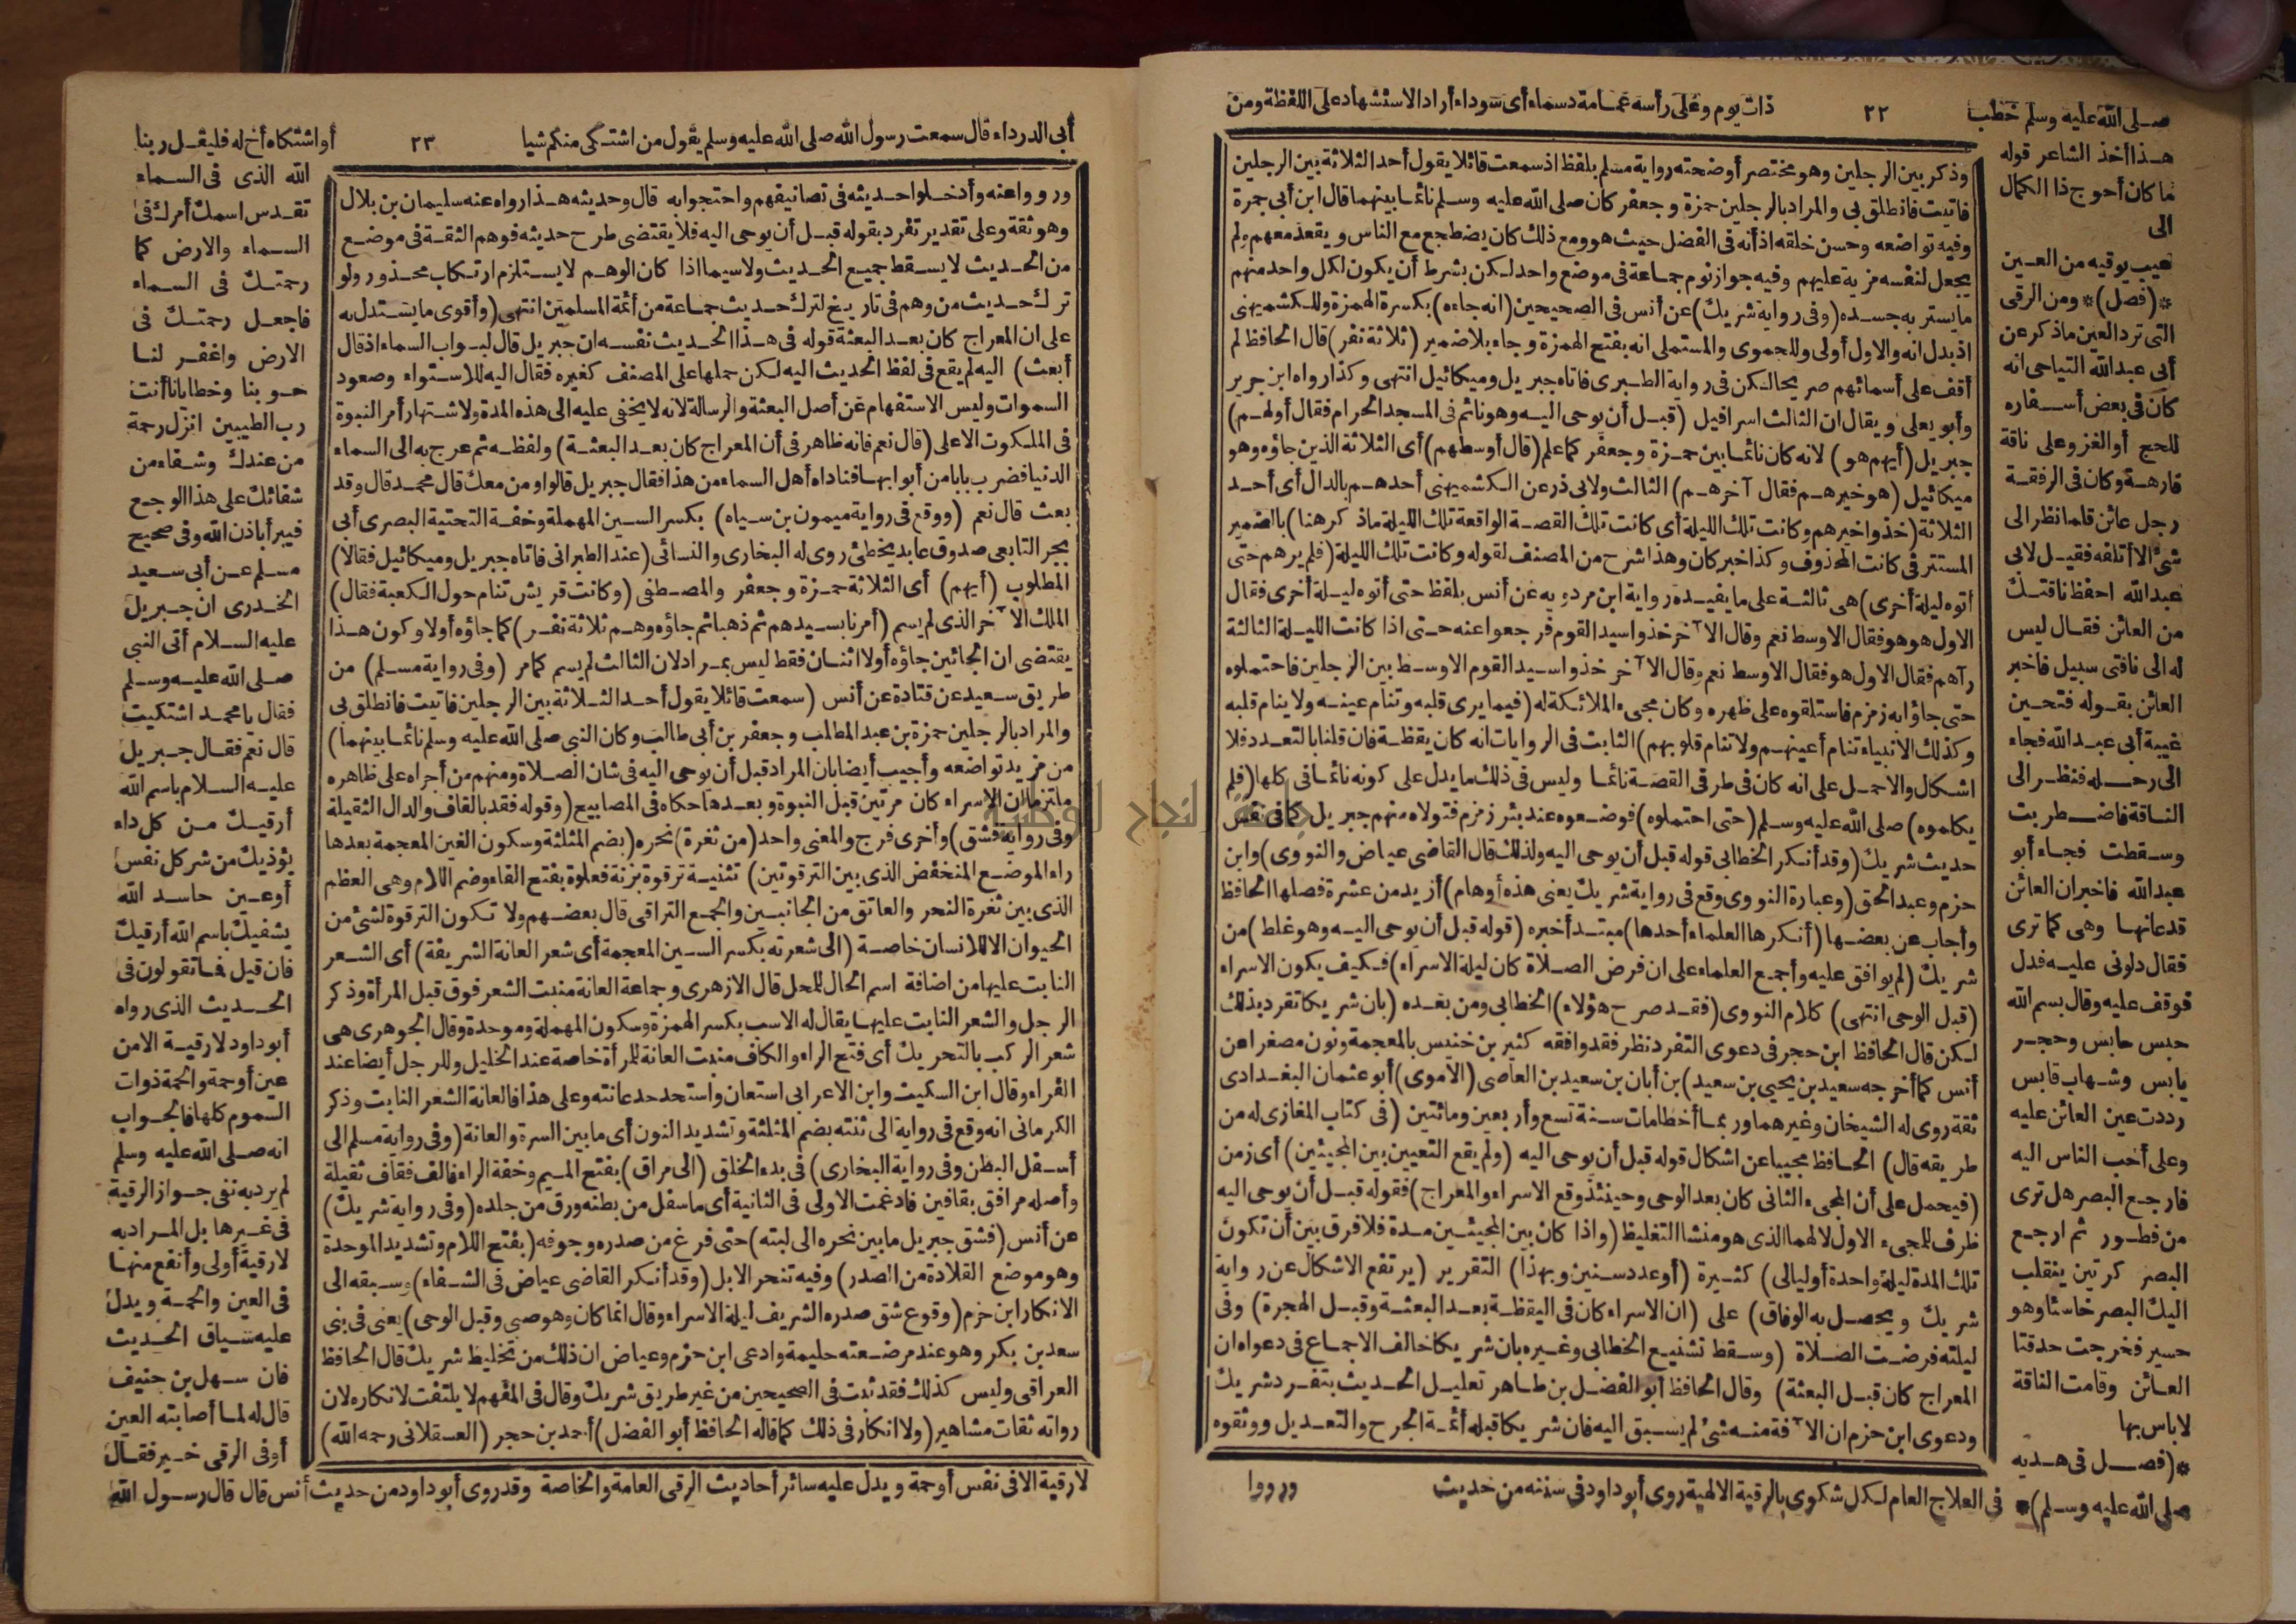 صلى الله عليه وسلم خطب ٢٢ ذات يوم وعلى رأسه عمامة دسماء أى سوداء أراد الاستشهاد على اللفظة ومن
هذا أخذ الشاعر قوله
ما كان أحوج ذا الكمال
الى
عيب يوقيه من العين
*(فصل)* ومن الرقى
التى ترد العين ماذكر عن
أبى عبد الله التياحى انه
كان فى بعض أسفاره
للحج أو الغزو على ناقة
فارهة وكان فى الرفقة
رجل عائن قلما نظر الى
شئ الا أتلفه فقيل لابى
عبد الله احفظ ناقتك
من العائن فقال ليس
له الى ناقتى سبيل فاخبر
العائن بقوله فتحين
غيبة أبى عبد الله فجاء
الى رحله فنظر الى
الناقة فاضطربت
وسقطت فجاء أبو
عبد الله فاخبر ان العائن
قد عانها وهى كما ترى
فقال دلونى عليه فدل
فوقف عليه وقال بسم الله
حبس حابس وحجر
يابس وشهاب قابس
رددت عين العائن عليه
وعلى أحب الناس اليه
فارجع البصر هل ترى
من فطور ثم ارجع
البصر كرتين ينقلب
اليك البصر خاسئا وهو
حسير فخرجت حدقتا
العائن وقامت الناقة
لاباس بها
*(فصل فى هديه
صلى الله عليه وسلم)* فى العلاج العام لكل شكوى بالرقية الالهية روى أبو داود فى سننه من حديث
وذكر بين الرجلين وهو مختصر أوضحته رواية مسلم بلفظ اذ سمعت قائلا يقول أحد الثلاثة بين الرجلين
فاتيت فانطلق بى والمراد بالرجلين حمزة وجعفر كان صلى الله عليه وسلم نائما بينهما قال ابن أبى جمرة
وفيه تواضعه وحسن خلقه اذ أنه فى الفضل حيث هو ومع ذلك كان يضطجع مع الناس ويقعد معهم ولم
يجعل لنفسه مزية عليهم وفيه جواز نوم جماعة فى موضع واحد لكن بشرط أن يكون لكل واحد منهم
مايستر به جسده (وفى رواية شريك) عن أنس فى الصحيحين (انه جاءه) بكسرة الهمزة وللكشميهنى
اذ بدل انه والاول أولى وللحموى والمستملى انه بفتح الهمزة وجاء بلا ضمير (ثلاثة نفر) قال الحافظ لم
أقف على أسمائهم صريحا لكن فى رواية الطبرى فاتاه جبريل وميكائيل انتهى وكذا رواه ابن جرير
وأبو يعلى ويقال ان الثالث اسرافيل (قبل أن يوحى اليه وهو نائم فى المسجد الحرام فقال أولهم)
جبريل (أيهم هو) لانه كان نائما بين حمزة وجعفر كما علم (قال أوسطهم) أى الثلاثة الذين جاؤه وهو
ميكائيل (هو خيرهم فقال آخرهم) الثالث ولابى ذر عن الكشميهنى أحدهم بالدال أى أحد
الثلاثة (خذوا خيرهم وكانت تلك الليلة أى كانت تلك القصة الواقعة تلك الليلة ماذكر هنا) بالضمير
المستتر فى كانت المحذوف وكذا خبر كان وهذا شرح من المصنف لقوله وكانت تلك الليلة (فلم يرهم حتى
أتوه ليلة أخرى) هى ثالثة على ما يفيده رواية ابن مردويه عن أنس بلفظ حتى أتوه ليلة أخرى فقال
الاول هو هو فقال الاوسط نعم وقال الآخر خذوا سيد القوم فرجعوا عنه حتى اذا كانت الليلة الثالثة
رآهم فقال الاول هو فقال الاوسط نعم وقال الآخر خذوا سيد القوم الاوسط بين الرجلين فاحتملوه
حتى جاؤا به زمزم فاستلقوه على ظهره وكان مجىء الملائكة له (فيما يرى قلبه وتنام عينه ولا ينام قلبه
وكذلك الانبياء تنام أعينهم ولا تنام قلوبهم) الثابت فى الروايات انه كان يقظة فان قلنا بالتعدد فلا
اشكال والاحمل على انه كان فى طرفى القصة نائما وليس فى ذلك ما يدل على كونه نائما فى كلها (فلم
يكلموه) صلى الله عليه وسلم (حتى احتملوه) فوضعوه عند بئر زمزم فتولاه منهم جبريل كما فى نفس
حديث شريك (وقد أنكر الخطابى قوله قبل أن يوحى اليه ولذلك قال القاضى عياض والنووى) وابن
حزم وعبد الحق (وعبارة النووى وقع فى رواية شريك يعنى هذه أوهام) أزيد من عشرة فصلها الحافظ
وأجاب عن بعضها (أنكرها العلماء أحدها) مبتدأ خبره (قوله قبل أن يوحى اليه وهو غلط) من
شريك (لم يوافق عليه وأجمع العلماء على ان فرض الصلاة كان ليلة الاسراء) فكيف يكون الاسراء
(قبل الوحى انتهى) كلام النووى (فقد صرح هؤلاء) الخطابى ومن بعده (بان شريكا تفرد بذلك
لكن قال الحافظ ابن حجر فى دعوى التفرد نظر فقد وافقه كثير بن خنيس بالمعجمة ونون مصغرا عن
أنس كما أخرجه سعيد بن يحيى بن سعيد) بن أبان بن سعيد بن العاصى (الاموى) أبو عثمان البغدادى
ثقة روى له الشيخان وغيرهما وربما أخطا مات سنة تسع وأربعين ومائتين (فى كتاب المغازى له من
طريقه قال) الحافظ مجيبا عن اشكال قوله قبل أن يوحى اليه (ولم يقع التعيين بين المجيئين) أى زمن
(فيحمل على أن المجىء الثانى كان بعد الوحى وحينئذ وقع الاسراء والمعراج) فقوله قبل أن يوحى اليه
ظرف للمجىء الاول لا لهما الذى هو منشا التغليظ (واذا كان بين المجيئين مدة فلا فرق بين أن تكون
تلك المدة ليلة واحدة أو ليالى) كثيرة (أو عدد سنين وبهذا) التقرير (يرتفع الاشكال عن رواية
شريك ويحصل به الوفاق) على (ان الاسراء كان فى اليقظة بعد البعثة وقبل الهجرة) وفى
ليلته فرضت الصلاة (وسقط تشنيع الخطابى وغيره بان شريكا خالف الاجماع فى دعواه ان
المعراج كان قبل البعثة) وقال الحافظ أبو الفضل بن طاهر تعليل الحديث بتفرد شريك
ودعوى ابن حزم ان الآفة منه شئ لم يسبق اليه فان شريكا قبله أئمة الجرح والتعديل ووثقوه
ورووا
أبى الدرداء قال سمعت رسول الله صلى الله عليه وسلم يقول من اشتكى منكم شيا ٢٣ أو اشتكاه أخ له فليقل ربنا
ورووا عنه وأدخلوا حديثه فى تصانيفهم واحتجوا به قال وحديثه هذا رواه عنه سليمان بن بلال
وهو ثقة وعلى تقدير تفرد بقوله قبل أن يوحى اليه فلا يقتضى طرح حديثه فوهم الثقة فى موضع
من الحديث لا يسقط جميع الحديث ولا سيما اذا كان الوهم لا يستلزم ارتكاب محذور ولو
ترك حديث من وهم فى تاريخ لترك حديث جماعة من أئمة المسلمين انتهى (وأقوى ما يستدل به
على ان المعراج كان بعد البعثة قوله فى هذا الحديث نفسه ان جبريل قال لبواب السماء اذ قال
أبعث) اليه لم يقع فى لفظ الحديث اليه لكن حملها على المصنف كغيره فقال اليه للاستواء وصعود
السموات وليس الاستفهام عن أصل البعثة والرسالة لانه لا يخفى عليه الى هذه المدة ولاشتهار أمر النبوة
فى الملكوت الاعلى (قال نعم فانه ظاهر فى أن المعراج كان بعد البعثة) ولفظه ثم عرج به الى السماء
الدنيا فضرب بابا من أبوابها فناداه أهل السماء من هذا فقال جبريل قالوا ومن معك قال محمد قال وقد
بعث قال نعم (ووقع فى رواية ميمون بن سياه) بكسر السين المهملة وخفة التحتية البصرى أبى
بحر التابعى صدوق عابد يخطئ روى له البخارى والنسائى (عند الطبرانى فاتاه جبريل وميكائيل فقالا)
المطلوب (أيهم) أى الثلاثة حمزة وجعفر والمصطفى (وكانت قريش تنام حول الكعبة فقال)
الملك الآخر الذى لم يسم (أمرنا بسيدهم ثم ذهبا ثم جاؤه وهم ثلاثة نفر) كما جاؤه أولا وكون هذا
يقتضى ان الجائين جاؤه أولا اثنان فقط ليس بمراد لان الثالث لم يسم كما مر (وفى رواية مسلم) من
طريق سعيد عن قتادة عن أنس (سمعت قائلا يقول أحد الثلاثة بين الرجلين فاتيت فانطلق بى
والمراد بالرجلين حمزة بن عبد المطلب وجعفر بن أبى طالب وكان النبى صلى الله عليه وسلم نائما بينهما)
من مزيد تواضعه وأجيب أيضا بان المراد قبل أن يوحى اليه فى شان الصلاة ومنهم من أجراه على ظاهره
ملتزما ان الاسراء كان مرتين قبل النبوة وبعدها حكاه فى المصابيح (وقوله فقد بالقاف والدال الثقيلة
وفى رواية فشق) وأخرى فرج والمعنى واحد (من ثغرة) نحره (بضم المثلثة وسكون الغين المعجمة بعدها
راء الموضع المنخفض الذى بين الترقوتين) تثنية ترقوة بزنة فعلوة بفتح الفاء وضم اللام وهى العظم
الذى بين ثغرة النحر والعاتق من الجانبين والجمع التراقى قال بعضهم ولا تكون الترقوة لشئ من
الحيوان الا للانسان خاصة (الى شعرته بكسر السين المعجمة أى شعر العانة الشريفة) أى الشعر
النابت عليها من اضافة اسم الحال للمحل قال الازهرى وجماعة العانة منبت الشعر فوق قبل المرأة وذكر
الرجل والشعر النابت عليها يقال له الاسب بكسر الهمزة وسكون المهملة وموحدة وقال الجوهرى هى
شعر الركب بالتحريك أى فتح الراء والكاف منبت العانة للمرأة خاصة عند الخليل وللرجل أيضا عند
الفراء وقال ابن السكيت وابن الاعرابى استعان واستحد حد عانته وعلى هذا فالعانة الشعر النابت وذكر
الكرمانى انه وقع فى رواية الى ثنته بضم المثلثة وتشديد النون أى ما بين السرة والعانة (وفى رواية مسلم الى
أسفل البطن وفى رواية البخارى) فى بدء الخلق (الى مراق) بفتح الميم وخفة الراء فالف فقاف ثقيلة
وأصله مراقق بقافين فادغمت الاولى فى الثانية أى ما سفل من بطنه ورق من جلده (وفى رواية شريك)
عن أنس (فشق جبريل ما بين نحره الى لبته) حتى فرغ من صدره وجوفه (بفتح اللام وتشديد الموحدة
وهو موضع القلادة من الصدر) وفيه تنحر الابل (وقد أنكر القاضى عياض فى الشفاء) وسبقه الى
الانكار ابن حزم (وقوع شق صدره الشريف ليلة الاسراء وقال انما كان وهو صبى وقبل الوحى) يعنى فى بنى
سعد بن بكر وهو عند مرضعته حليمة وادعى ابن حزم وعياض ان ذلك من تخليط شريك قال الحافظ
العراقى وليس كذلك فقد ثبت فى الصحيحين من غير طريق شريك وقال فى المفهم لا يلتفت لانكاره لان
رواته ثقات مشاهير (ولا انكار فى ذلك كما قاله الحافظ أبو الفضل) أحمد بن حجر (العسقلانى رحمه الله)
الله الذى فى السماء
تقدس اسمك أمرك فى
السماء والارض كما
رحمتك فى السماء
فاجعل رحمتك فى
الارض واغفر لنا
حوبنا وخطايانا أنت
رب الطيبين انزل رحمة
من عندك وشفاء من
شفائك على هذا الوجع
فيبرأ باذن الله وفى صحيح
مسلم عن أبى سعيد
الخدرى ان جبريل
عليه السلام أتى النبى
صلى الله عليه وسلم
فقال يا محمد اشتكيت
قال نعم فقال جبريل
عليه السلام باسم الله
أرقيك من كل داء
يؤذيك من شر كل نفس
أو عين حاسد الله
يشفيك باسم الله أرقيك
فان قيل فما تقولون فى
الحديث الذى رواه
أبو داود لا رقية الا من
عين أو حمة والحمة ذوات
السموم كلها فالجواب
انه صلى الله عليه وسلم
لم يرد به نفى جواز الرقية
فى غيرها بل المراد به
لا رقية أولى وأنفع منها
فى العين والحمة ويدل
عليه سياق الحديث
فان سهل بن حنيف
قال له لما أصابته العين
أو فى الرقى خير فقال
لا رقية الا فى نفس أو حمة ويدل عليه سائر أحاديث الرقى العامة والخاصة وقد روى أبو داود من حديث أنس قال قال رسول الله
جامعة النجاح الوطنية